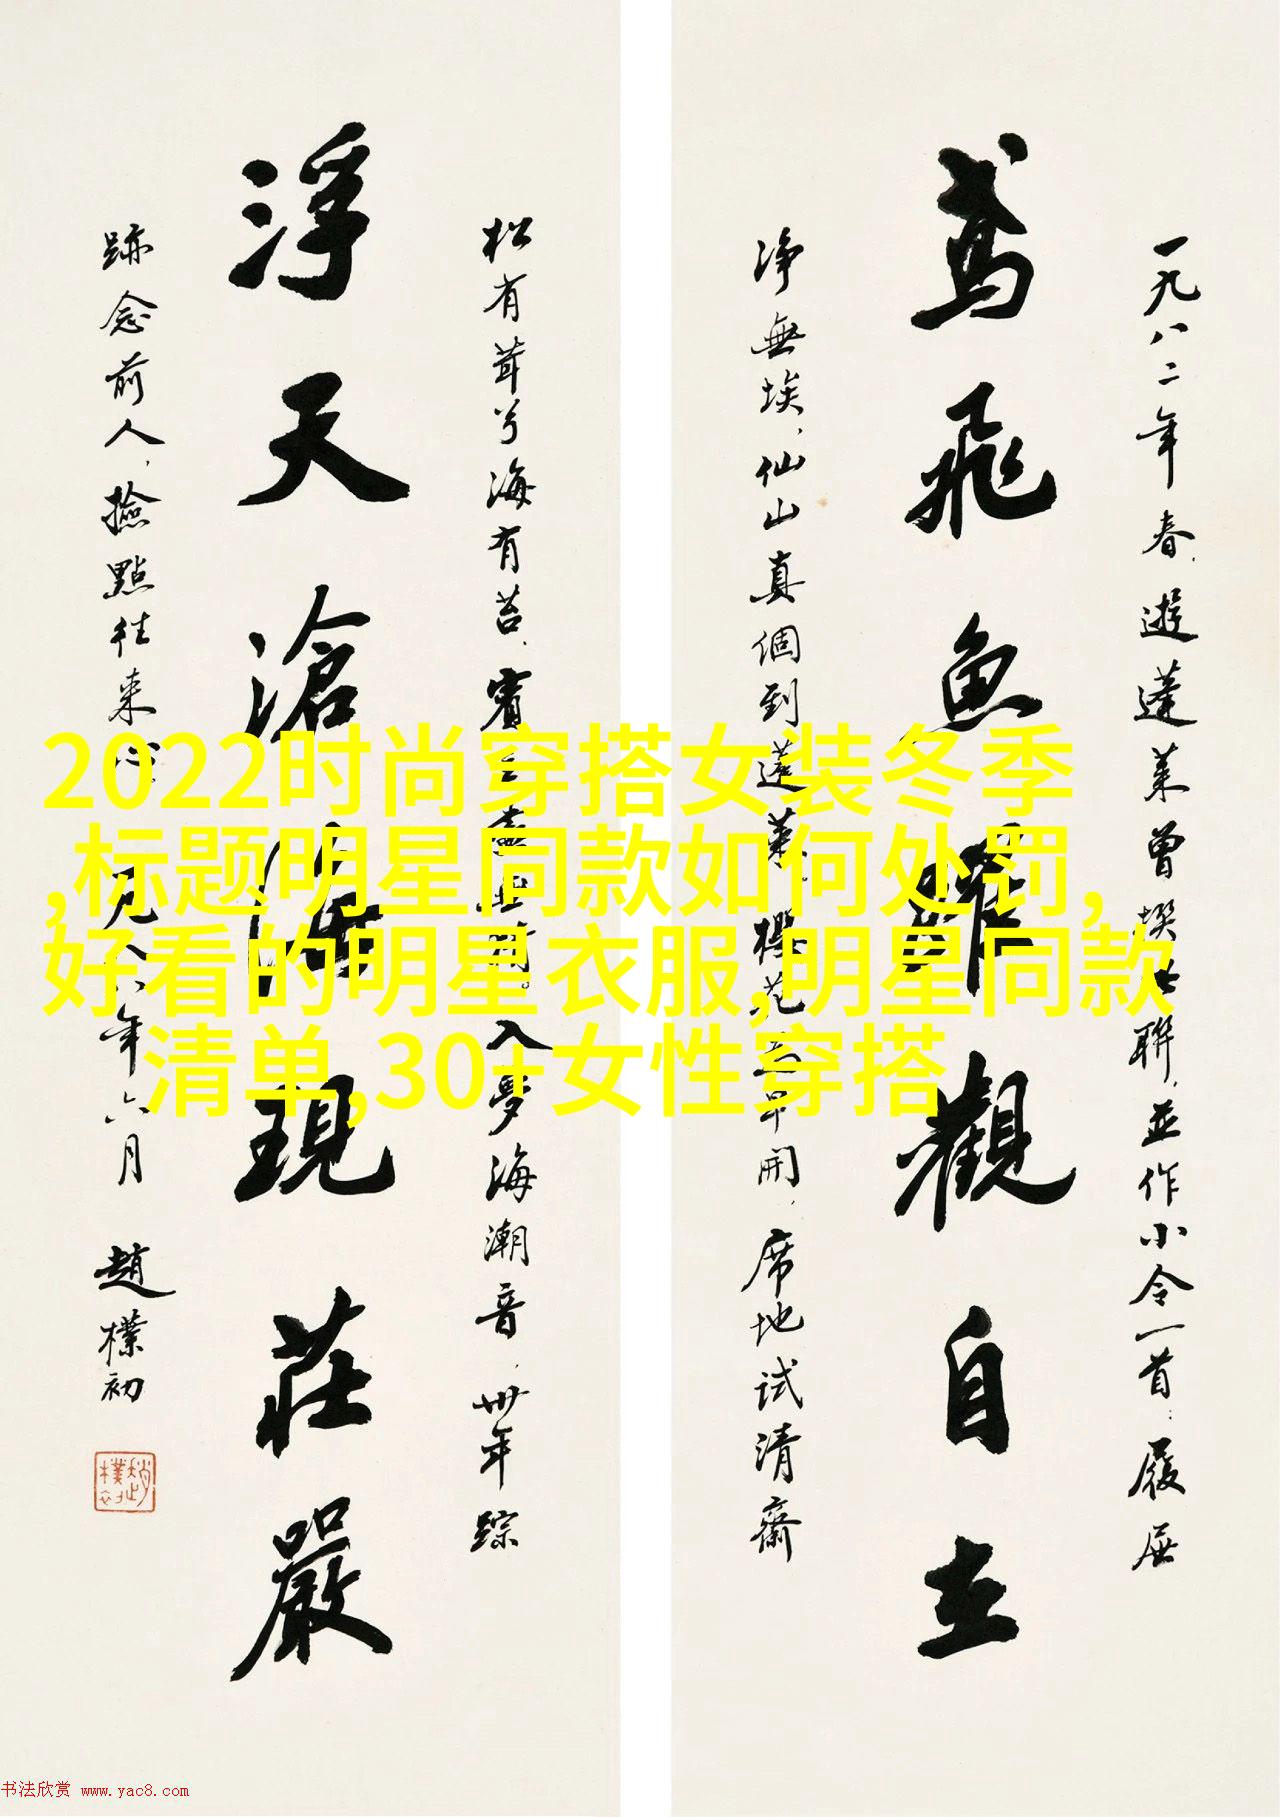 一九八二年春，遊蓬萊曾撰此聯，並作小令一首：履屐
鳶飛魚躍觀自在
净無埃，仙山真個到蓬萊，櫻花早開，席地試清齋
松有茸兮海有苔，賓主盡無猜。入夢海潮音，卅年踪
浮天滄海現莊嚴
跡念前人，撿點往來心。九八年六月 趙樸初
趙樸初
2022时尚穿搭女装冬季
,标题明星同款如何处罚,
好看的明星衣服,明星同款
清单,30+女性穿搭
书法欣赏 www.yac8.com